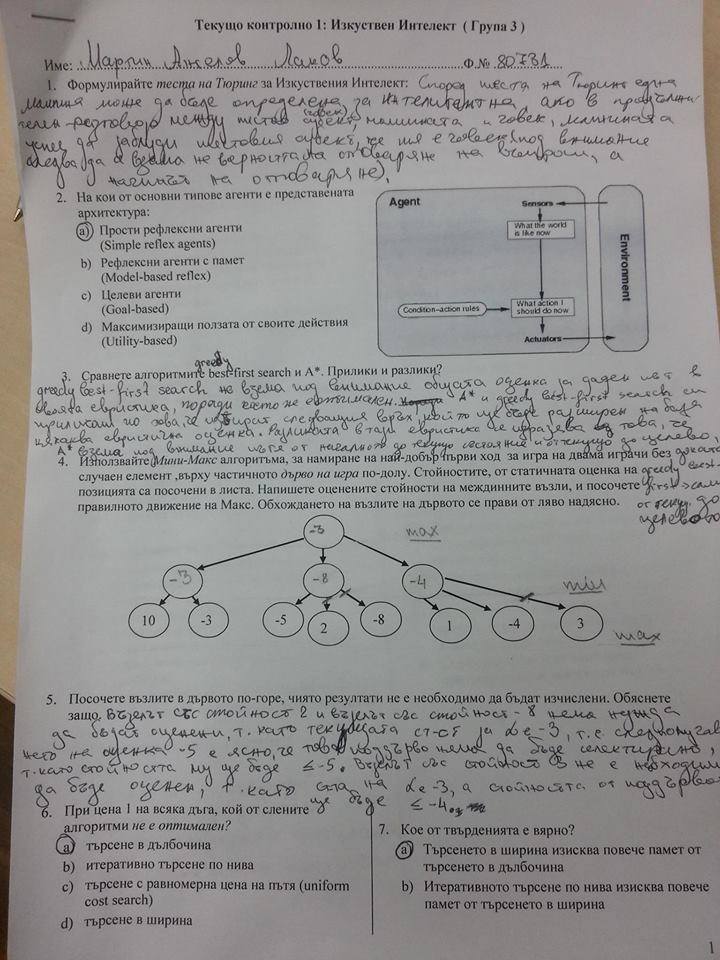 Текущо контролно 1: Изкуствен Интелект ( Група 3 )
Име: Мартин Ангелов Лаков Ф.№ 80731
1. Формулирайте теста на Тюринг за Изкуствения Интелект: Според теста на Тюринг една
машина може да бъде определена за интелигентна ако в
между тестов субект, машината и човек, машината
успее да заблуди тестовия субект, че тя е човек под внимание
следва да се взема не верността на отговаряне на въпроси, а
начинът на отговаряне).
2. На кои от основни типове агенти е представената
архитектура:
a) Прости рефлексни агенти
(Simple reflex agents)
b) Рефлексни агенти с памет
(Model-based reflex)
c) Целеви агенти
(Goal-based)
d) Максимизиращи ползата от своите действия
(Utility-based)
Agent
Sensors
What the world
is like now
Condition-action rules
What action I
should do now
Actuators
Environment
greedy
3. Сравнете алгоритмите best-first search и A*. Прилики и разлики?
greedy best-first search не взема под внимание общата оценка за даден път в
своята евристика, поради което не е оптимален. A* и greedy best-first search си
приличат по това, че избират следващия връх, който ще бъде разширен на база
някаква евристична оценка. Разликата в тази евристика се изразява в това, че
A* взема под внимание пътя от началното до текущо състояние и от текущо до целево,
докато
4. Използвайте Мини-Макс алгоритъма, за намиране на най-добър първи ход за игра на двама играчи без
greedy best-
случаен елемент ,върху частичното дърво на игра по-долу. Стойностите, от статичната оценка на
first само
позицията са посочени в листа. Напишете оценените стойности на междинните възли, и посочете
от текущ. до
правилното движение на Макс. Обхождането на възлите на дървото се прави от ляво надясно.
целево
-3 max
-3 -8 -4 min
10 -3 -5 2 -8 1 -4 3
max
5. Посочете възлите в дървото по-горе, чиято резултати не е необходимо да бъдат изчислени. Обяснете
защо. Възелът със стойност 2 и възелът със стойност -8 няма нужда
да бъдат оценени, т. като текущата ст-ст за α е -3, т.е. след получава
нето на оценка -5 е ясно, че това поддърво няма да бъде селектирано,
т. като стойността му ще бъде ≤ -5. Възелът със стойност 3 не е необходимо
да бъде оценен, т. като на α е -3, а стойността от поддървото
ще бъде ≤ -4.
6. При цена 1 на всяка дъга, кой от слените
алгоритми не е оптимален?
a) търсене в дълбочина
b) итеративно търсене по нива
c) търсене с равномерна цена на пътя (uniform
cost search)
d) търсене в ширина
7. Кое от твърденията е вярно?
a) Търсенето в ширина изисква повече памет от
търсенето в дълбочина
b) Итеративното търсене по нива изисква повече
памет от търсенето в ширина
1